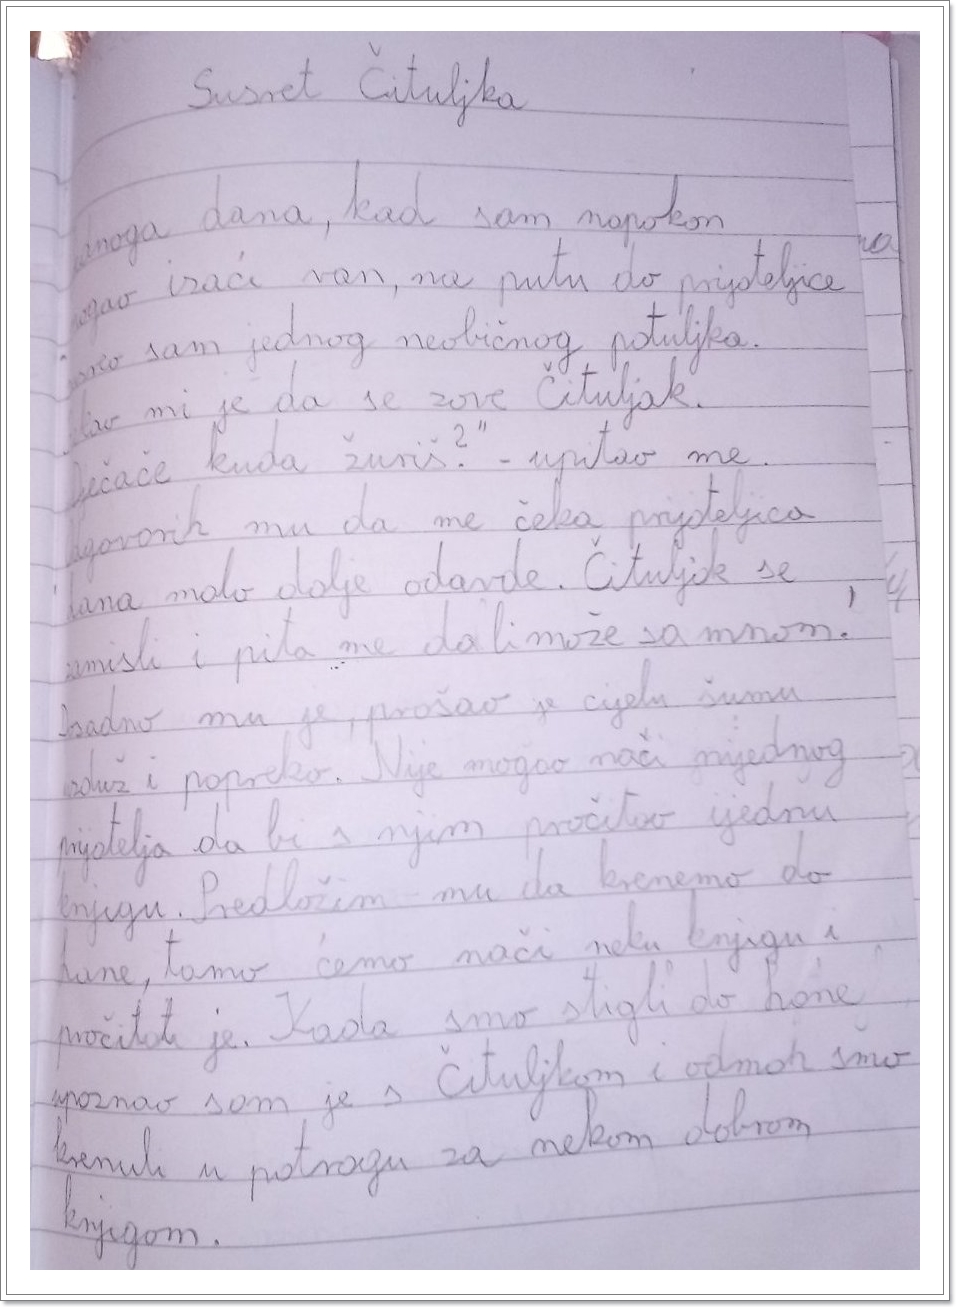 Susret Čituljka
dana, kad sam napokon
izaći van, na putu do prijateljice
sam jednog neobičnog potuljka.
mi je da se zove Čituljak.
Dječače kuda žuriš?" - upitao me.
Odgovorih mu da me čeka prijateljica
Hana malo dolje odavde. Čituljak se
zamisli i pita me da li može sa mnom.
Dosadno mu je, prošao je cijelu šumu
uzduž i popreko. Nije mogao nači nijednog
prijatelja da bi s njim pročitao ijednu
knjigu. Predložim mu da krenemo do
Hane, tamo ćemo nači neku knjigu i
pročitati je. Kada smo stigli do hane
upoznao sam je s Čituljkom i odmah smo
krenuli u potragu za nekom dobrom
knjigom.